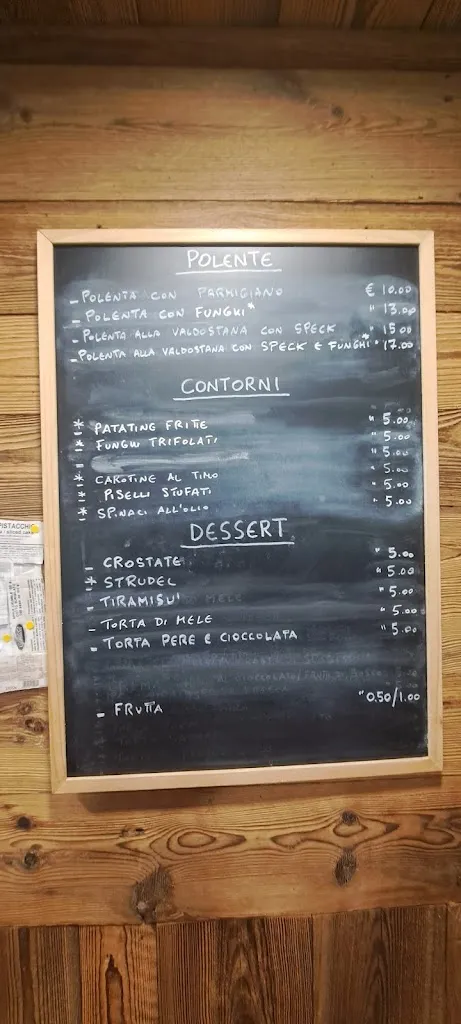 POLENTE
- POLENTA CON PARMIGIANO € 10.00
- POLENTA CON FUNGHI* " 13.00
- POLENTA ALLA VALDOSTANA CON SPECK " 15.00
- POLENTA ALLA VALDOSTANA CON SPECK E FUNGHI* " 17.00
CONTORNI
* PATATINE FRITTE " 5.00
* FUNGHI TRIFOLATI " 5.00
" 5.00
* CAROTINE AL TIMO " 5.00
* PISELLI STUFATI " 5.00
* SPINACI ALL'OLIO " 5.00
DESSERT
- CROSTATE " 5.00
* STRUDEL " 5.00
- TIRAMISU' " 5.00
- TORTA DI MELE " 5.00
- TORTA PERE E CIOCCOLATA " 5.00
- FRUTTA " 0.50/1.00
PISTACCHIO